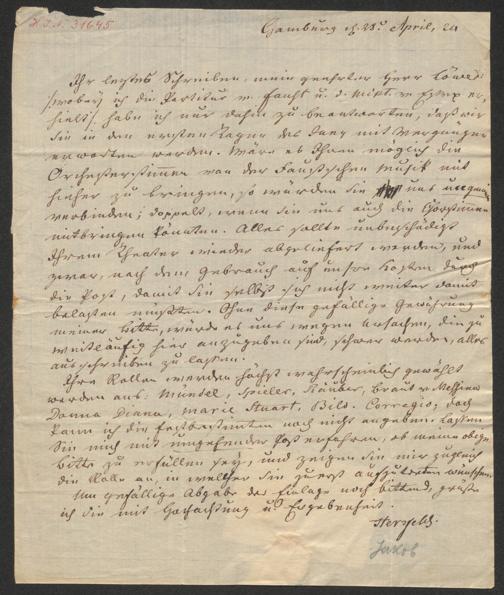 H.I.N. 31645
Hamburg d. 28. April, 2
Ihr letztes Schreiben, mein geehrter Herr Löwe
(wobey ich die Partitur v. Faust u. d. v. er-
hielt), habe ich nur dahin zu beantworten, daß wir
Sie in den ersten Tagen des Juny mit Vergnügen
erwarten werden. Wäre es Ihnen möglich die
Orchesterstimmen von der Faustschen Musik mit
hieher zu bringen, so würden Sie uns ungemein
verbinden; doppelt, wenn Sie uns auch die Chorstimmen
mitbringen könnten. Alles sollte unbeschädigt
Ihrem Theater wieder abgeliefert werden, und
zwar, nach dem Gebrauch auf unsre Kosten durch
die Post, damit Sie selbst sich nicht weiter damit
belasten müßten. Ohne diese gefällige Gewährung
meiner Bitte, würde es uns wegen Ursachen, die zu
weitläufig hier anzugeben sind, schwer werden, alles
ausschreiben zu lassen.
Ihre Rollen werden höchst wahrscheinlich gewählt
werden aus: Mündel, Spieler, Räuber, Braut v. Messina
Donna Diana, Marie Stuart, Bild. Correggio; doch
kann ich die Festbestimmten noch nicht angeben. Lassen
Sie mich mit umgehender Post erfahren, ob meine obige
Bitte zu erfüllen sey, und zeigen Sie mir zugleich
die Rolle an, in welcher Sie zuerst aufzutreten wünschen.
Um gefällige Abgabe der Einlage noch bittend, grüße
ich Sie mit Hochachtung u. Ergebenheit.
Herzfeld.
Jakob